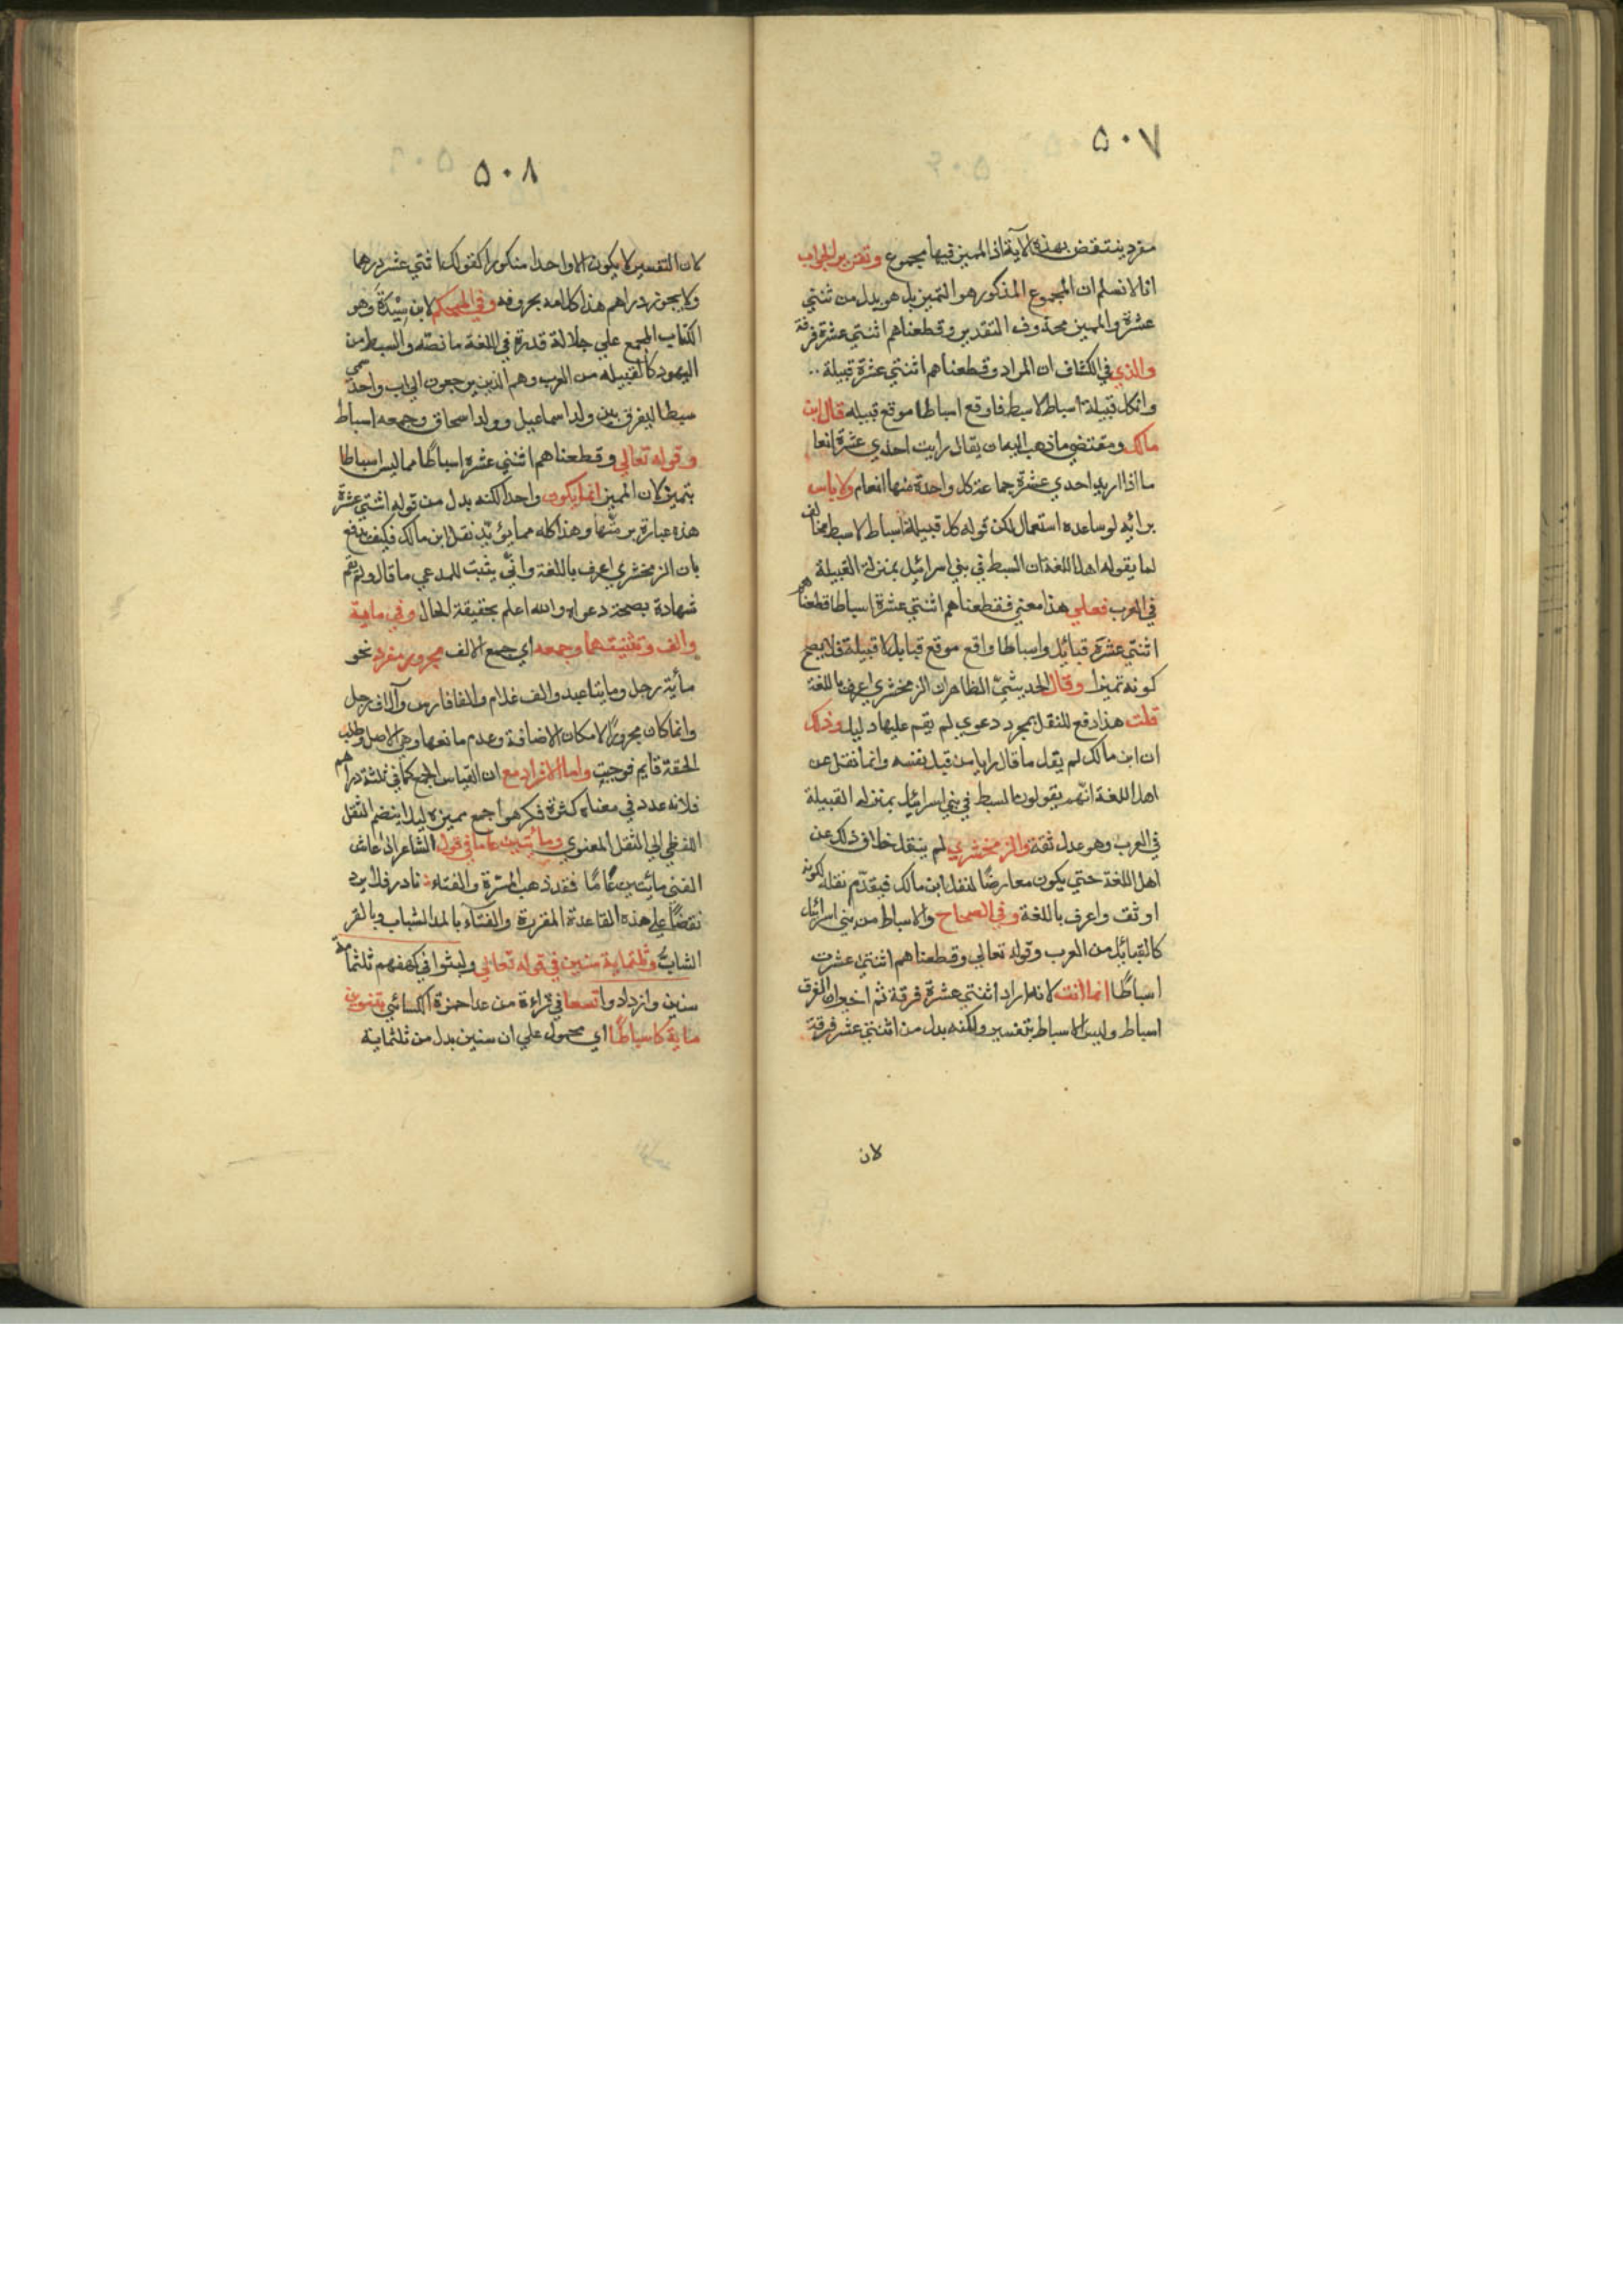 ٥٠٧
مفرد ينتقض بهذه الآية اذ المميز فيها مجموع وتقرير الجواب
انا لا نسلم ان المجموع المذكور هو التميز بل هو بدل من ثنتي
عشرة والمميز محذوف التقدير وقطعناهم اثنتي عشرة فرقة
والذي في الكشاف ان المراد وقطعناهم اثنتي عشرة قبيلة
وان كل قبيلة اسباط لا سبط فاوقع اسباطا موقع قبيلة قال ابن
مالك ومقتضي ما ذهب اليه ان يقال رايت احدي عشرة انعا
ما اذا اريد احدي عشرة جماعة كل واحدة منها انعام ولا باس
برائه لو ساعده استعمال لكن قوله كل قبيلة اسباط لا سبط مخالف
لما يقوله اهل اللغة ان السبط في بني اسرائيل بمنزلة القبيلة
في العرب فعلي هذا معني فقطعناهم اثنتي عشرة اسباطا قطعناهم
اثنتي عشرة قبائل واسباطا واقع موقع قبايل لا قبيلة فلا يصح
كونه تميزا وقال الحديثي الظاهر ان الزمخشري اعرف باللغة
قلت هذا دفع للنقل بمجرد دعوي لم يقم عليها دليل وذلك
ان ابن مالك لم يقل ما قال رايا من قبل نفسه وانما نقل عن
اهل اللغة انهم يقولون السبط في بني اسرائيل بمنزلة القبيلة
في العرب وهو عدل ثقة والزمخشري لم ينقل خلاف ذلك عن
اهل اللغة حتي يكون معارضًا لنقل ابن مالك فيقدّم نقله لكونه
اوثق واعرف باللغة وفي الصحاح والاسباط من بني اسرائيل
كالقبائل من العرب وقوله تعالي وقطعناهم اثنتي عشرت
اسباطًا انما انث لانه اراد اثنتي عشرة فرقة ثم اخبر ان الفرق
اسباط وليس الاسباط بتفسير ولكنه بدل من اثنتي عشر فرقة
لان
٥٠٨
لان التفسير لا يكون الا واحدا منكورا كقولك اثني عشر درهما
ولا يجوز دراهم هذا كلامه بحروفه وفي المحكم لابن سِيْدَة وهو
الكتاب المجمع علي جلالة قدره في اللغة ما نصّه والسبط من
اليهود كالقبيله من العرب وهم الذين يرجعون الي اب واحد سمي
سبطا ليفرق بين ولد اسماعيل وولد اسحاق وجمعه اسباط
وقوله تعالي وقطعناهم اثنتي عشرة اسباطًا مما ليس اسباطا
بتميز لان المميز انما يكون واحدا لكنه بدل من قوله اثنتي عشرة
هذه عبارة برمتها وهذا كله مما يؤيّد نقل ابن مالك فكيف يدفع
بان الزمخشري اعرف باللغة وانّي يثبت للمدعي ما قال ولم يقم
شهادة بصحة دعواه والله اعلم بحقيقة الحال وفي ماية
والف وتثنيتهما وجمعه اي جمع الالف مجرور مفرد نحو
مأية رجل ومايتا عبد والف غلام والفا فارس وآلاف رجل
وانما كان مجرورًا لامكان الاضافة وعدم مانعها وهي الاصل وطلب
الخفة قايم فوجبت واما الافراد مع ان القياس الجمع كما في ثلثة دراهم
فلانه عدد في معناه كثرة فكرهوا جمع مميزه ليلا ينضم الثقل
اللفظي الي الثقل المعنوي ومائتين عاما في قول الشاعر اذا عاش
الفتي مائتين عامًا فقد ذهب المسرة والفتاء نادر فلا يرد
نقضًا علي هذه القاعدة المقررة والفتآء بالمد الشباب وبالقر
الشابّ وثلثماية سنين في قوله تعالي ولبثوا في كهفهم ثلثماية
سنين وازدادوا تسعا في قراءة من عدا حمزة الكسائي بتنوين
ماية كاسباطًا اي محمول علي ان سنين بدل من ثلثماية